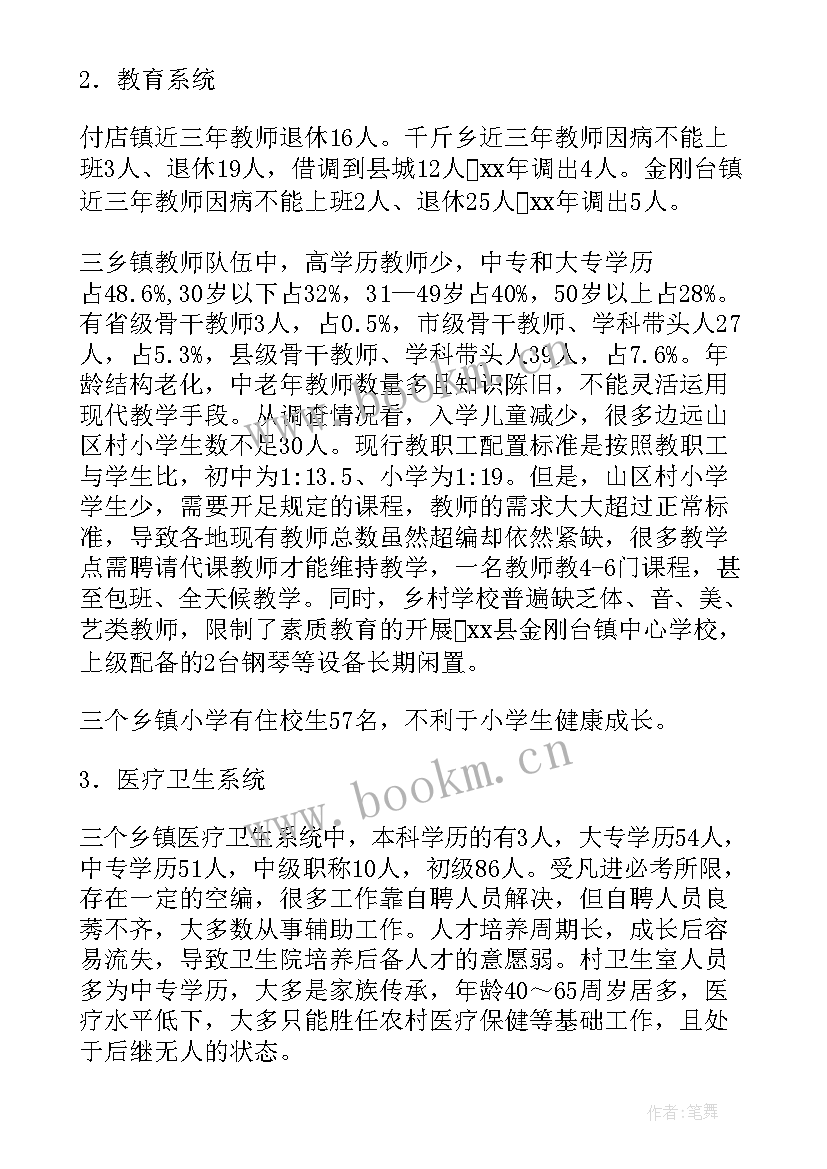 2．教育系统
付店镇近三年教师退休16人。千斤乡近三年教师因病不能上
班3人、退休19人，借调到县城12人xx年调出4人。金刚台镇
近三年教师因病不能上班2人、退休25人xx年调出5人。
三乡镇教师队伍中，高学历教师少，中专和大专学历
占48.6%,30岁以下占32%，31—49岁占40%，50岁以上占28%。
有省级骨干教师3人，占0.5%，市级骨干教师、学科带头人27
人，占5.3%，县级骨干教师、学科带头人39人，占7.6%。年
龄结构老化，中老年教师数量多且知识陈旧，不能灵活运用
现代教学手段。从调查情况看，入学儿童减少，很多边远山
区村小学生数不足30人。现行教职工配置标准是按照教职工
与学生比，初中为1:13.5、小学为1:19。但是，山区村小学
学生少，需要开足规定的课程，教师的需求大大超过正常标
准，导致各地现有教师总数虽然超编却依然紧缺，很多教学
点需聘请代课教师才能维持教学，一名教师教4-6门课程，甚
至包班、全天候教学。同时，乡村学校普遍缺乏体、音、美、
艺类教师，限制了素质教育的开展xx县金刚台镇中心学校，
上级配备的2台钢琴等设备长期闲置。
三个乡镇小学有住校生57名，不利于小学生健康成长。
3．医疗卫生系统
三个乡镇医疗卫生系统中，本科学历的有3人，大专学历54人，
中专学历51人，中级职称10人，初级86人。受凡进必考所限，
存在一定的空编，很多工作靠自聘人员解决，但自聘人员良
莠不齐，大多数从事辅助工作。人才培养周期长，成长后容
易流失，导致卫生院培养后备人才的意愿弱。村卫生室人员
多为中专学历，大多是家族传承，年龄40～65周岁居多，医
疗水平低下，大多只能胜任农村医疗保健等基础工作，且处
于后继无人的状态。
www.bookm.cn
www.bookm.cn
作者:笔舞